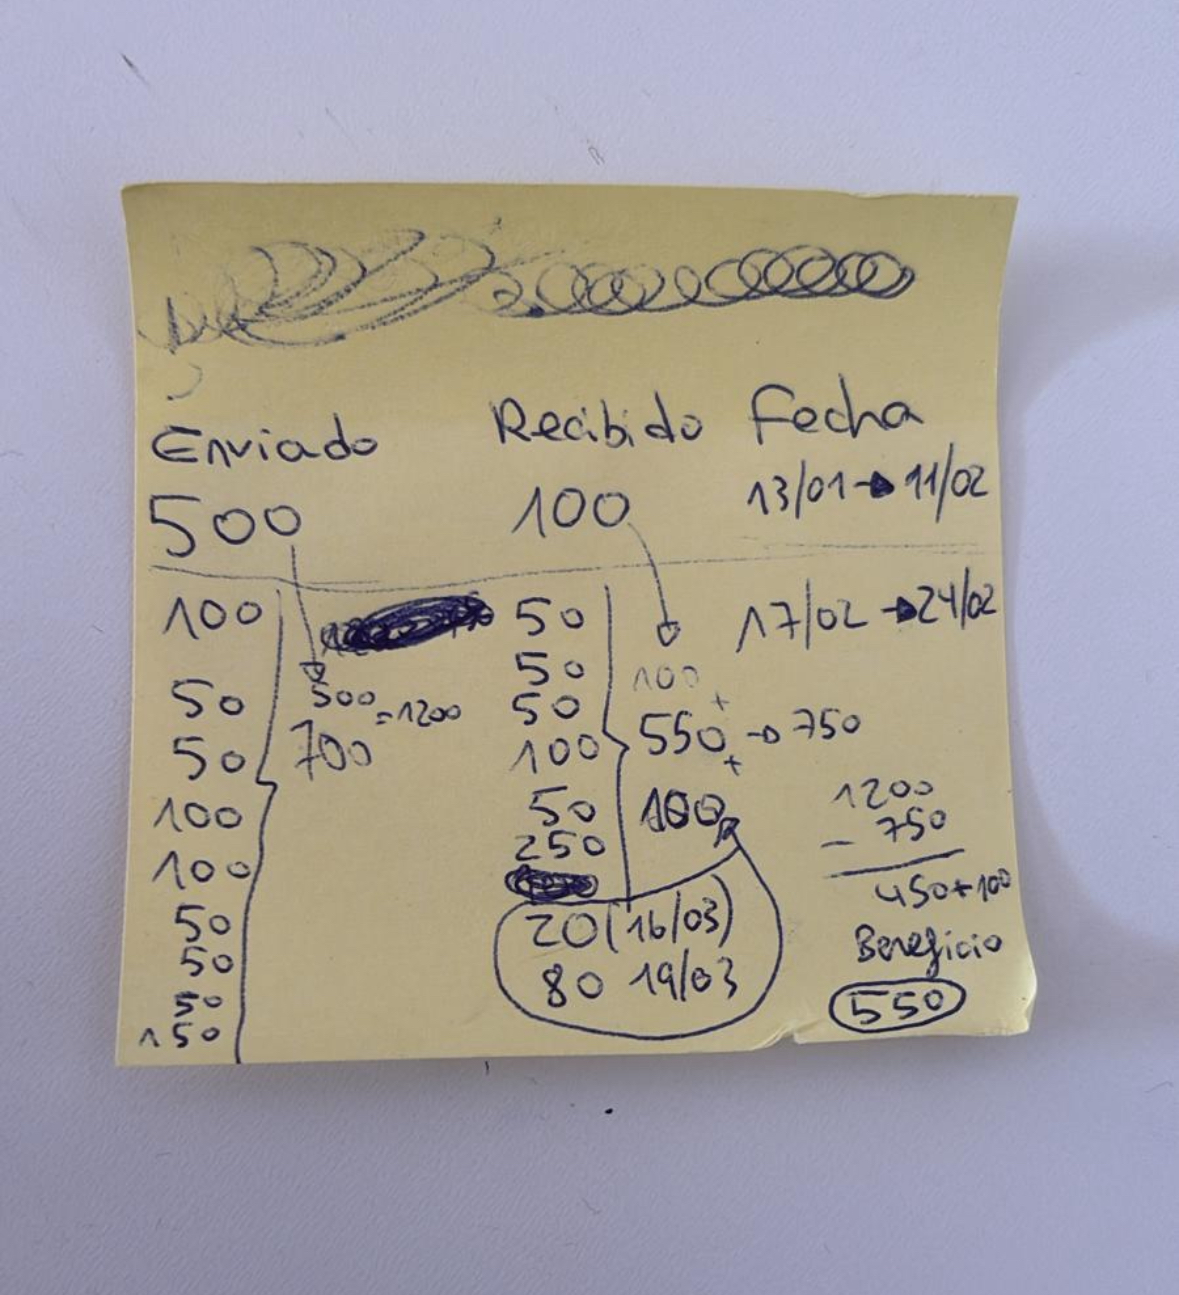 Enviado Recibido Fecha
500 100 13/01 → 11/02
100 50 17/02 → 24/02
50 500 = 1200 50 100 +
50 700 50 550 + → 750
100 100 100
100 50 1200
50 250 - 750
50 20 (16/03) 450 + 100
50 80 19/03 Beneficio
150 550